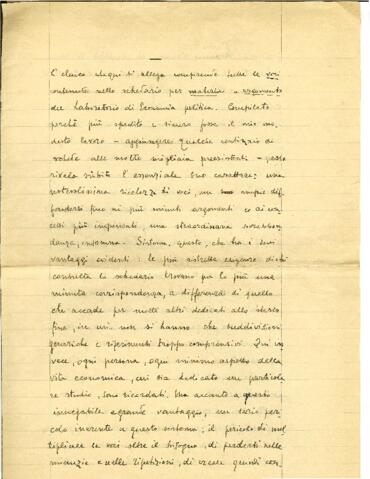 L'elenco che qui si allega comprende tutte le voci
contenute nello schedario per materia e argomento
del Laboratorio di Economia politica. Compilato
perchè più spedito e sicuro fosse il mio mo-
desto lavoro - aggiungere qualche centinaio di
schede alle molte migliaia preesistenti - esso
rivela subito l'essenziale suo carattere: una
notevolissima ricchezza di voci, un ampio dif-
fondersi fino ai più minuti argomenti e ai con-
cetti più infrequenti, una straordinaria sovrabbon-
danza, insomma. Sistema, questo, che ha i suoi
vantaggi evidenti: le più ristrette esigenze di chi
consulta lo schedario trovano per lo più una
minuta corrispondenza, a differenza di quello
che accade per molti altri dedicati allo stesso
fine, in cui non si hanno che suddivisioni
generiche e riferimenti troppo comprensivi. Qui in-
vece, ogni persona, ogni minimo aspetto della
vita economica, cui sia dedicato un particola-
re studio, sono ricordati. Ma accanto a questo
innegabile e grande vantaggio, un serio peri-
colo inerente a questo sistema; il pericolo di mol-
tiplicare le voci oltre il bisogno, di perdersi nelle
minuzie e nelle ripetizioni, di creare quindi con-